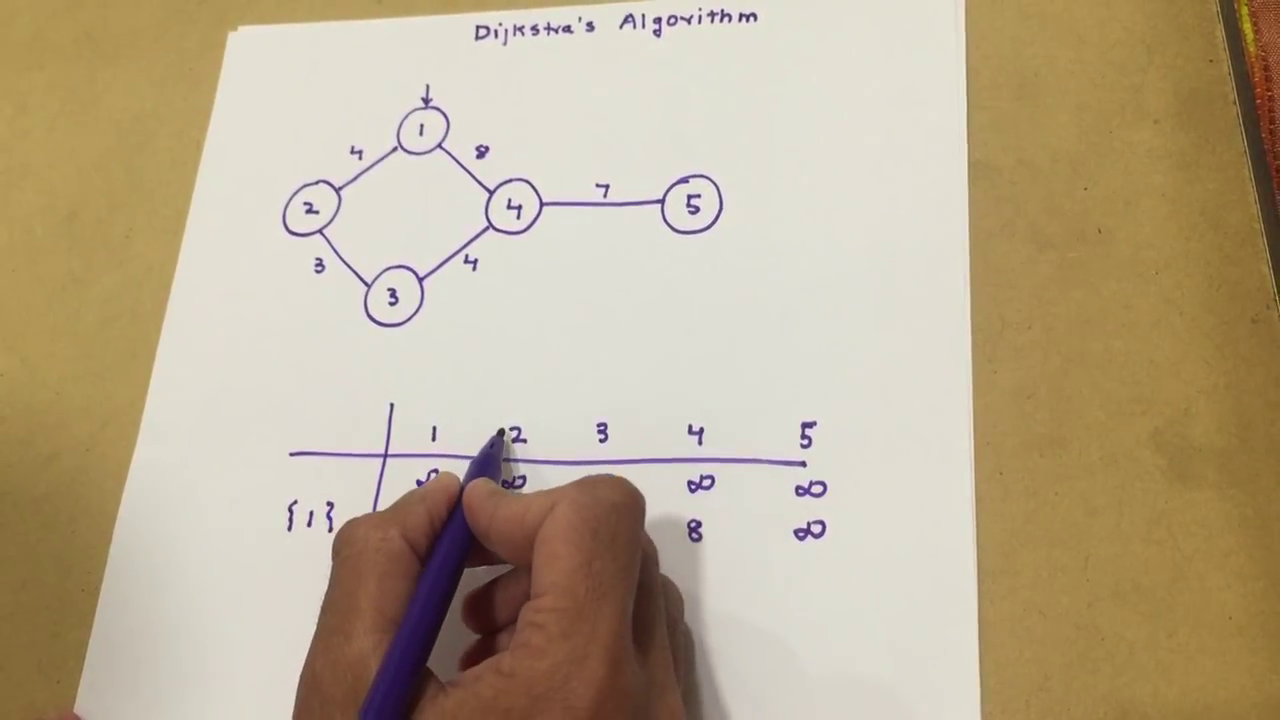 Dijkstra's Algorithm
1
4 8
2 4 7 5
3 4
3
1 2 3 4 5
∞ ∞ ∞ ∞
{1} 8 ∞